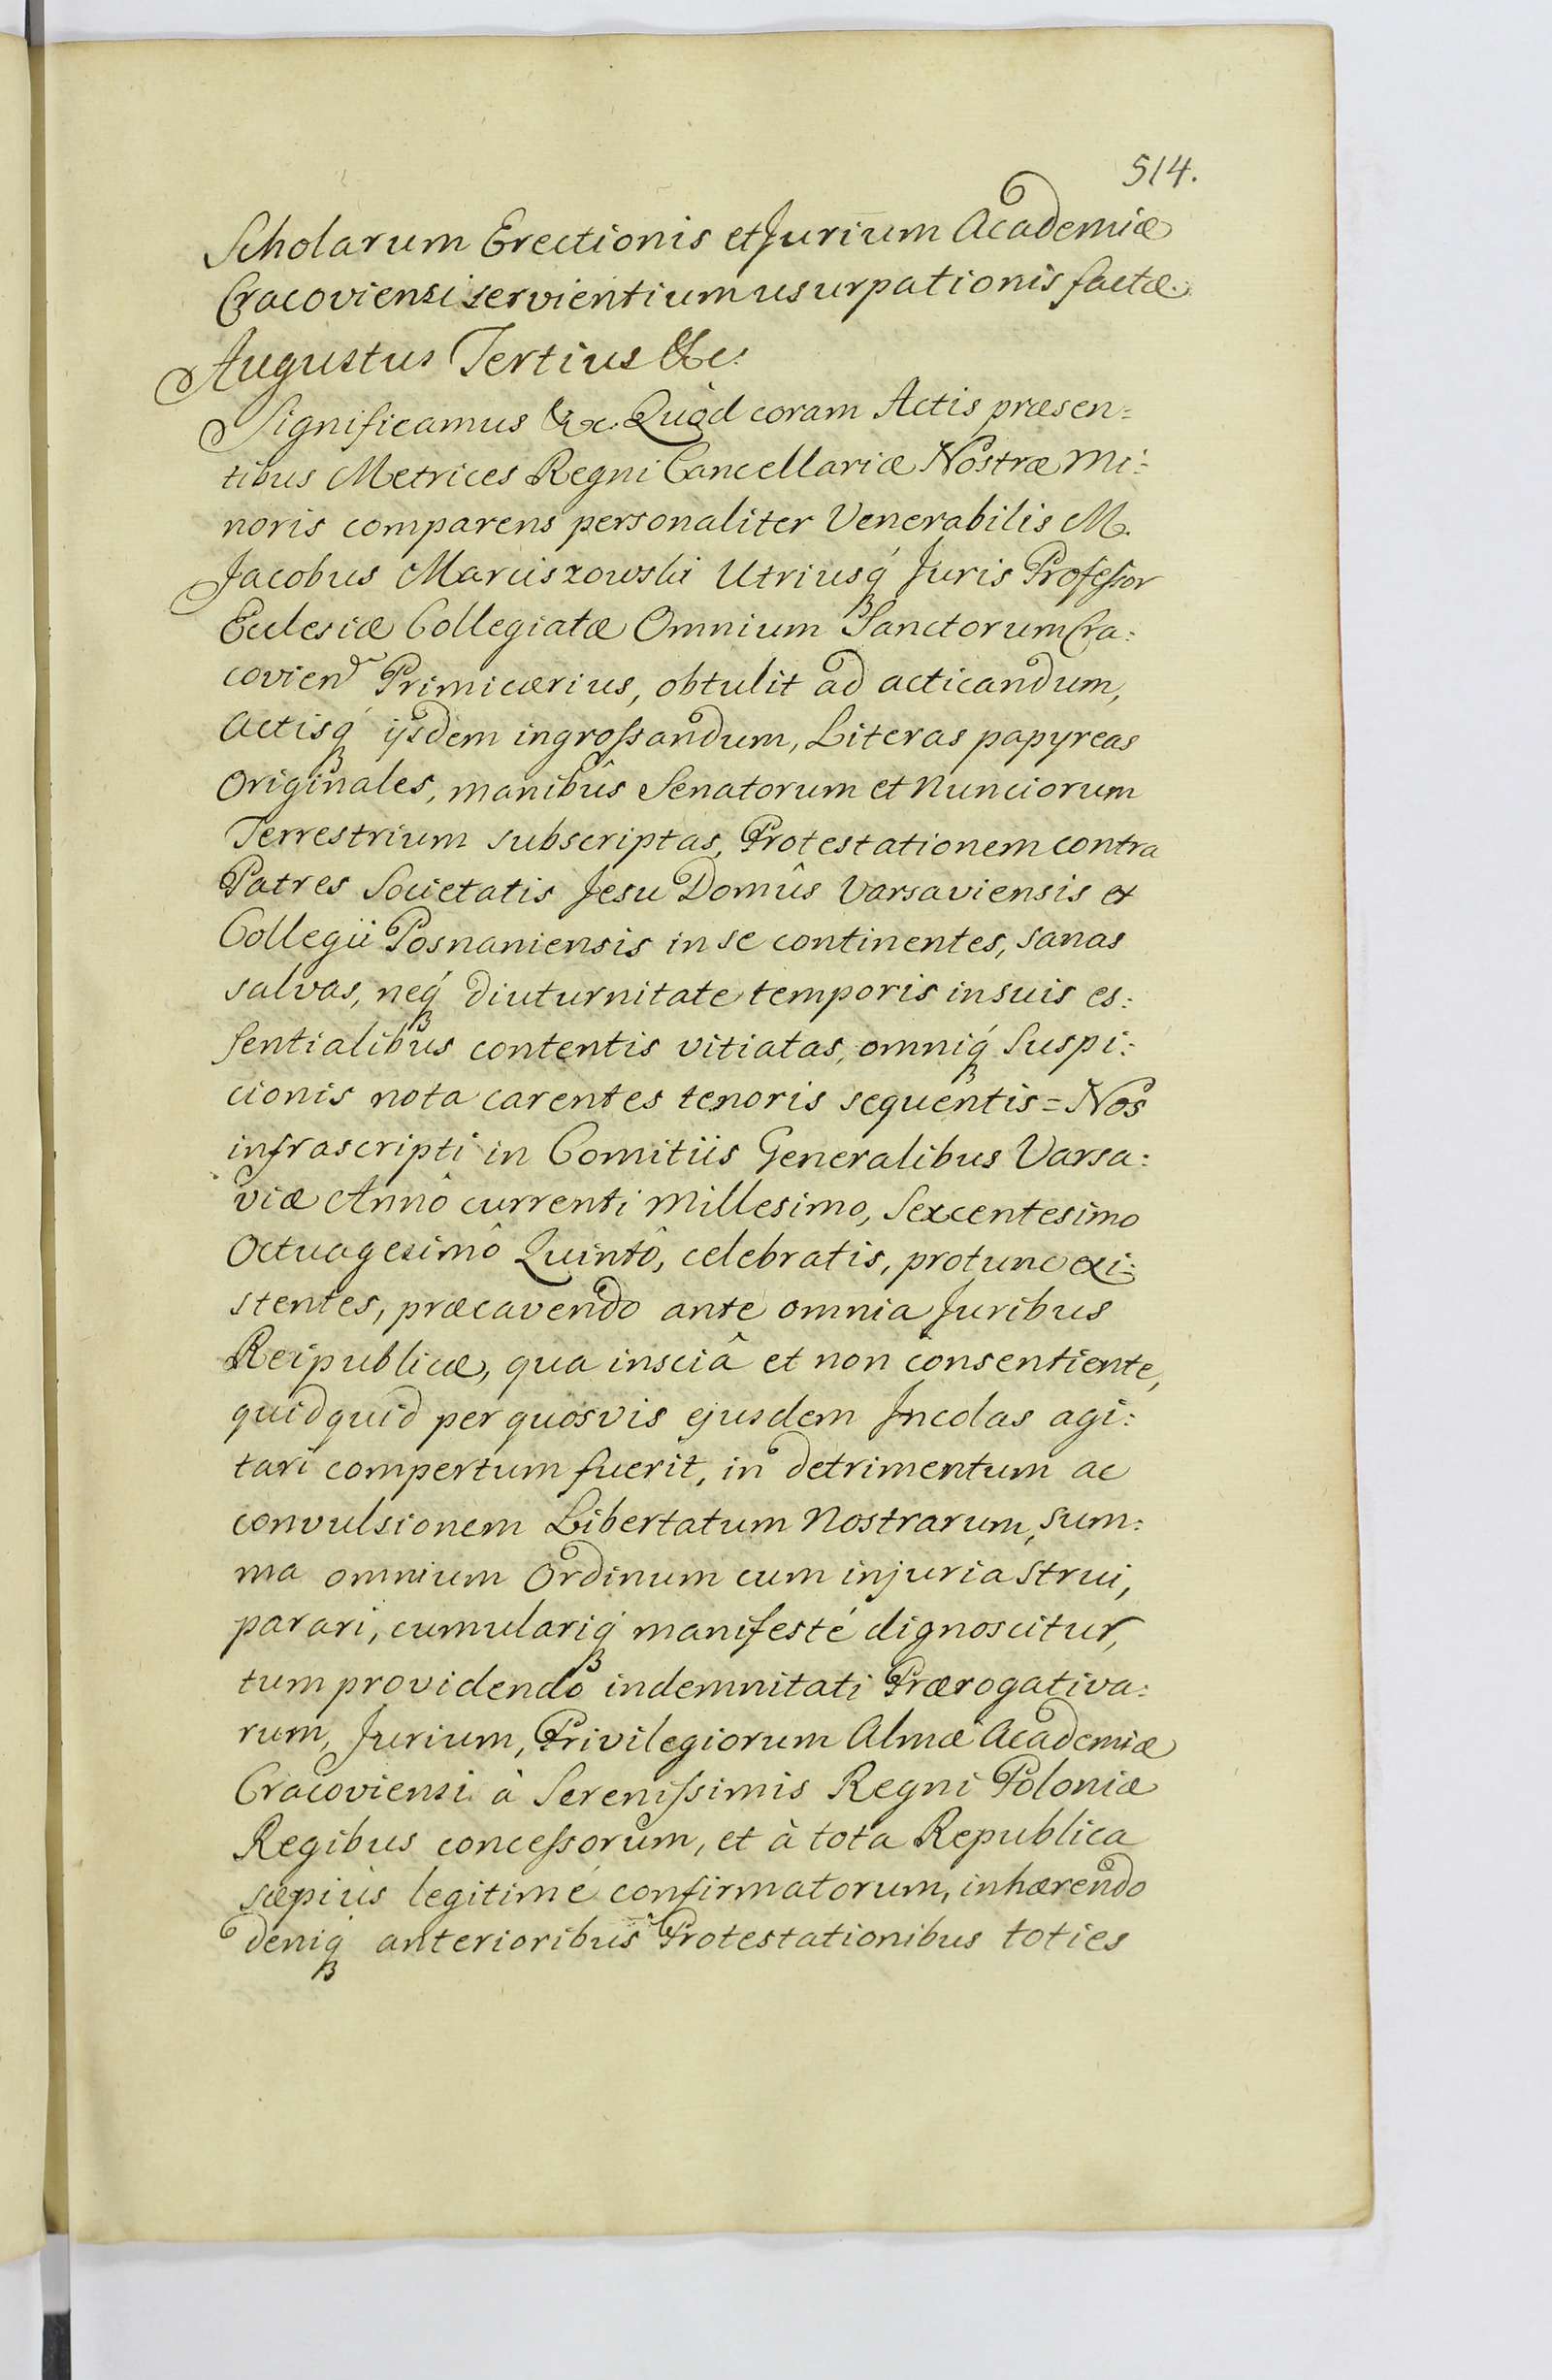 514.
Scholarum Erectionis et Jurium Academiæ
Cracoviensi servientium usurpationis factæ.
Augustus Tertius &c.
Significamus &c. Quòd coram Actis præsen=
tibus Metrices Regni Cancellariæ Nostræ Mi:
noris comparens personaliter Venerabilis M.
Jacobus Marciszowski Utriusq́ Juris Professor
Eclesiæ Collegiatæ Omnium Sanctorum Cra:
covien Primicærius, obtulit ad acticandum,
Actisq́ ijsdem ingrossandum, Literas papyreas
Originales, manibûs Senatorum et Nunciorum
Terrestrium subscriptas, Protestationem contra
Patres Societatis Jesu Domûs Varsaviensis et
Collegii Posnaniensis in se continentes, sanas
salvas, neq́ diuturnitate temporis in suis es:
sentialibus contentis vitiatas, omniq́ Suspi:
cionis nota carentes tenoris sequentis = Nos
infrascripti in Comitiis Generalibus Varsa:
viæ Annô currenti Millesimo, Sexcentesimo
Octuagesimô Quintô, celebratis, protunc exi:
stentes, præcavendo ante omnia Juribus
Reipublicæ, qua insciâ et non consentiente,
quidquid per quosvis ejusdem Incolas agi:
tari compertum fuerit, in detrimentum ac
convulsionem Libertatum Nostrarum, sum:
ma omnium Ordinum cum injuria strui,
parari, cumulariq́ manifesté dignoscitur,
tum providendo indemnitati Prærogativa:
rum, Jurium, Privilegiorum Almæ Academiæ
Cracoviensi à Serenissimis Regni Poloniæ
Regibus concessorum, et à tota Republica
sæpiùs legitimé confirmatorum, inhærendo
deniq́ anterioribus Protestationibus toties